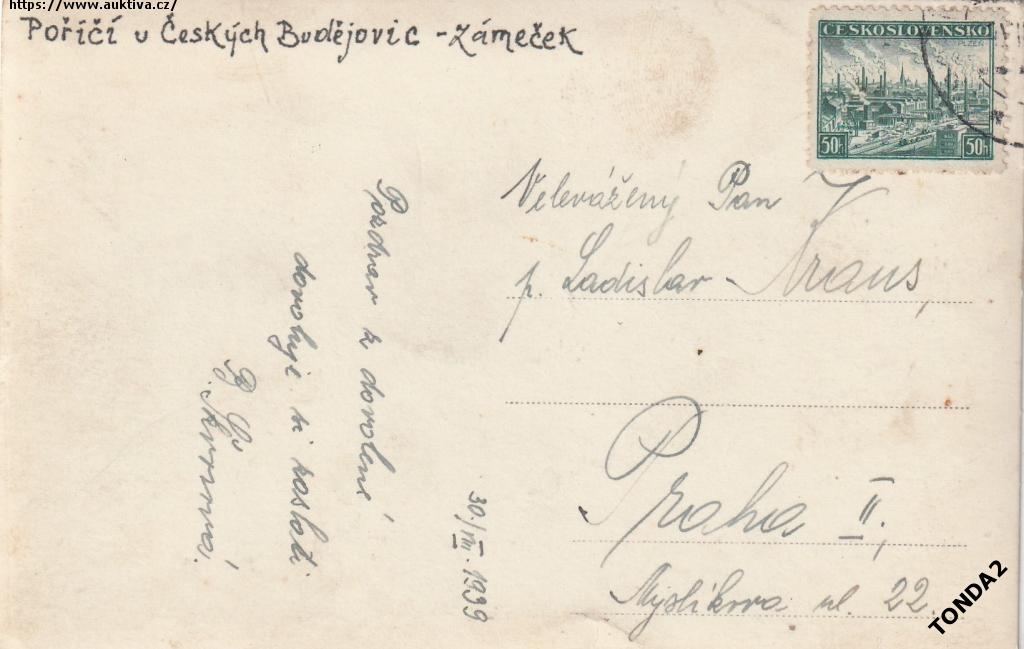 https://www.auktiva.cz/
Poříčí u Českých Budějovic - Zámeček
ČESKOSLOVENSKO
PLZEŇ
50h
50h
Velevážený Pan
p. Ladislav Kraus,
Praha II,
Myslíkova ul. 22.
Pozdrav z dovolené
dovoluje si zaslati
30./VIII. 1939
TONDA2